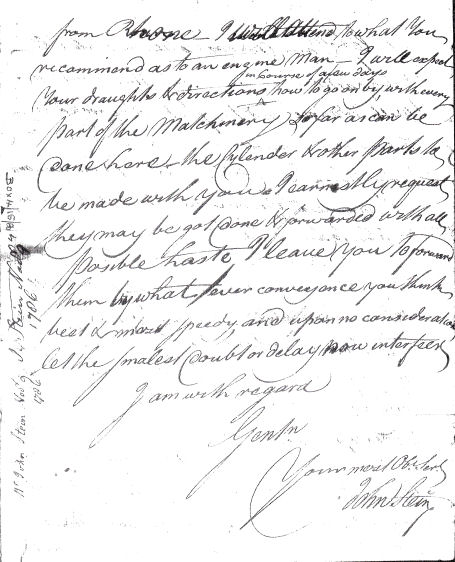 from Rhone - I will attend to what You
recommend as to an engine Man - I will expect
in Course of a few days
Your draughts & directions how to go on by with every
part of the Matchinery so far as can be
done here - the Cylender & other Parts to
be made with you I earnestly request
they may be got done & forwarded with all
posible haste I leave you to forward
them by what ever conveyance you think
best & most speedy, and upon no consideration
let the smalest doubt or delay now interfeer
I am with regard
Gentn
Your most Obt Sert
John Stein
Mr John Stein